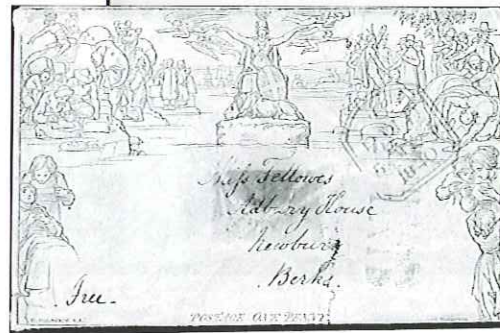 Miss Fellowes
Adbury House
Newbury
Berks.
Free.
POSTAGE ONE PENNY